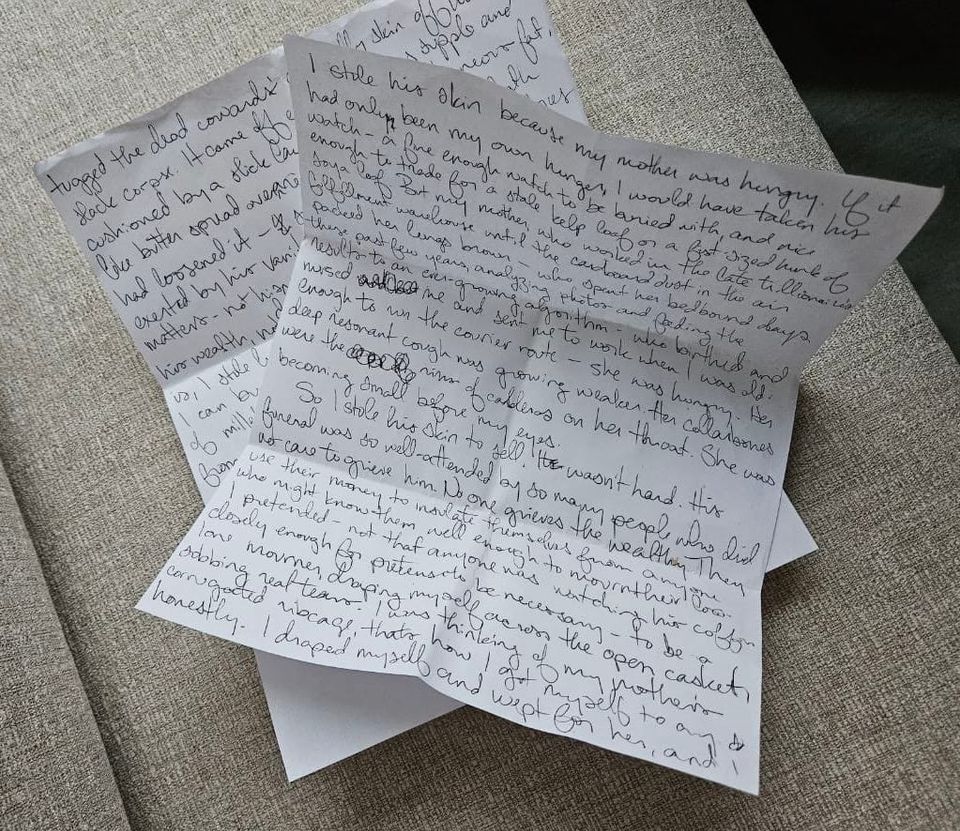 I stole his skin because my mother was hungry. If it
had only been my own hunger, I would have taken his
watch – a fine enough watch to be buried with, and nice
enough to trade for a stale kelp loaf or a fist-sized hunk of
soya loaf. But my mother, who worked in the late trillionaire's
fulfillment warehouse until the cardboard dust in the air
packed her lungs brown – who spent her bedbound days,
these past few years, analyzing photos and feeding the
results to an ever-growing algorithm – who birthed and
nursed me and sent me to work when I was old
enough to run the courier route – she was hungry. Her
deep resonant cough was growing weaker. Her collarbones
were the rims of calderas on her throat. She was
becoming small before my eyes.
So I stole his skin to sell. It wasn't hard. His
funeral was so well-attended by so many people who did
not care to grieve him. No one grieves the wealthy. They
use their money to insulate themselves from anyone
who might know them well enough to mourn their loss.
I pretended – not that anyone was watching his coffin
closely enough for pretension to be necessary – to be a
lone mourner, draping myself across the open casket,
sobbing real tears. I was thinking of my mother's
corrugated ribcage, that's how I got myself to cry
honestly. I draped myself and wept for her, and I
tugged the dead coward's skin off
slack corpse. It came off supple and
cushioned by a slick fat,
like butter spread
had loosened it –
exerted by his
matters – not his
his wealth,
I stole
I can
of